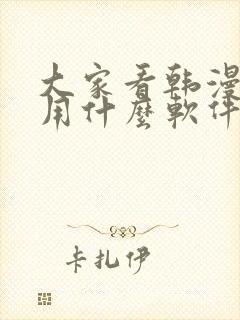 大家看韩漫
用什麼軟件
卡扎伊